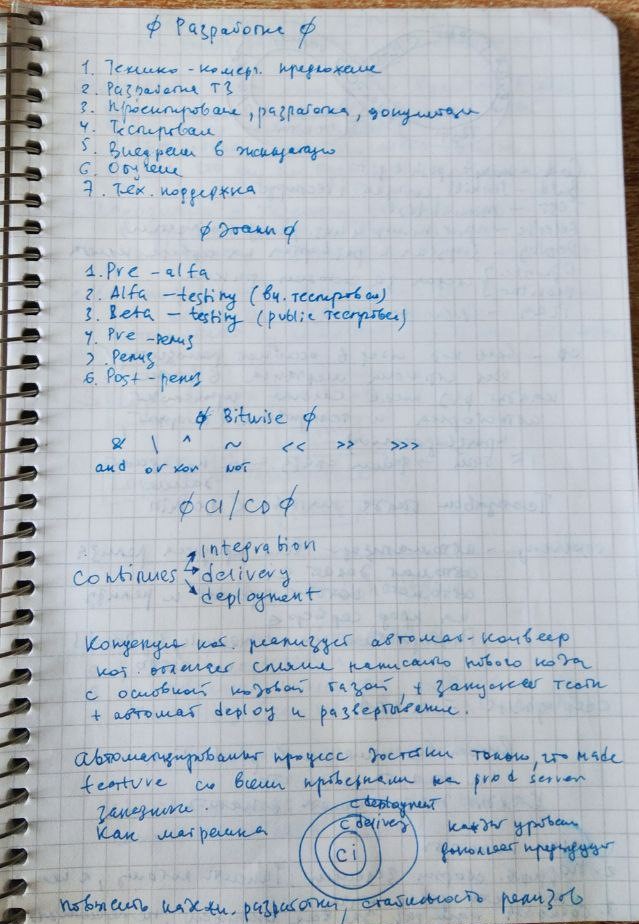 ∅ Разработка ∅
1. Технико-комерч. предложение
2. Разработка ТЗ
3. Проектирование, разработка, документация
4. Тестирован
5. Внедрени в эксплуатацию
6. Обучение
7. Тех. поддержка
∅ Этапы ∅
1. Pre - alfa
2. Alfa - testing (вн. тестирован)
3. Beta - testing (public тестирован)
4. Pre - релиз
5. Релиз
6. Post - релиз
∅ Bitwise ∅
& \ ^ ~ << >> >>>
and or xor not
∅ CI/CD ∅
integration
continues delivery
deployment
Концепция кот. реализует автомат-конвеер
кот. слияние написанного нового кода
с основной кодовой базой, + запускает тесты
+ автомат deploy и развертывание.
Автоматизирований процесс доставки только, что made
feature со всеми проверками на prod server
заказчика.
Как матрешка
c deployment
c delivery
ci
каждый уровень
дополняет предыдущ
разработки, стабильность релизов